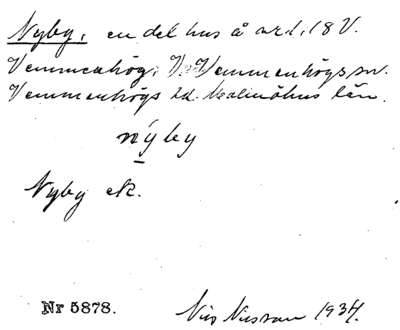 Nyby, en del hus å nr 1, 18 V.
Vemmenhög, V. Vemmenhögs sn.
Vemmenhögs hd. Malmöhus län.
nýby
Nyby ek.
Nr 5878. Nils Nilsson 1934.